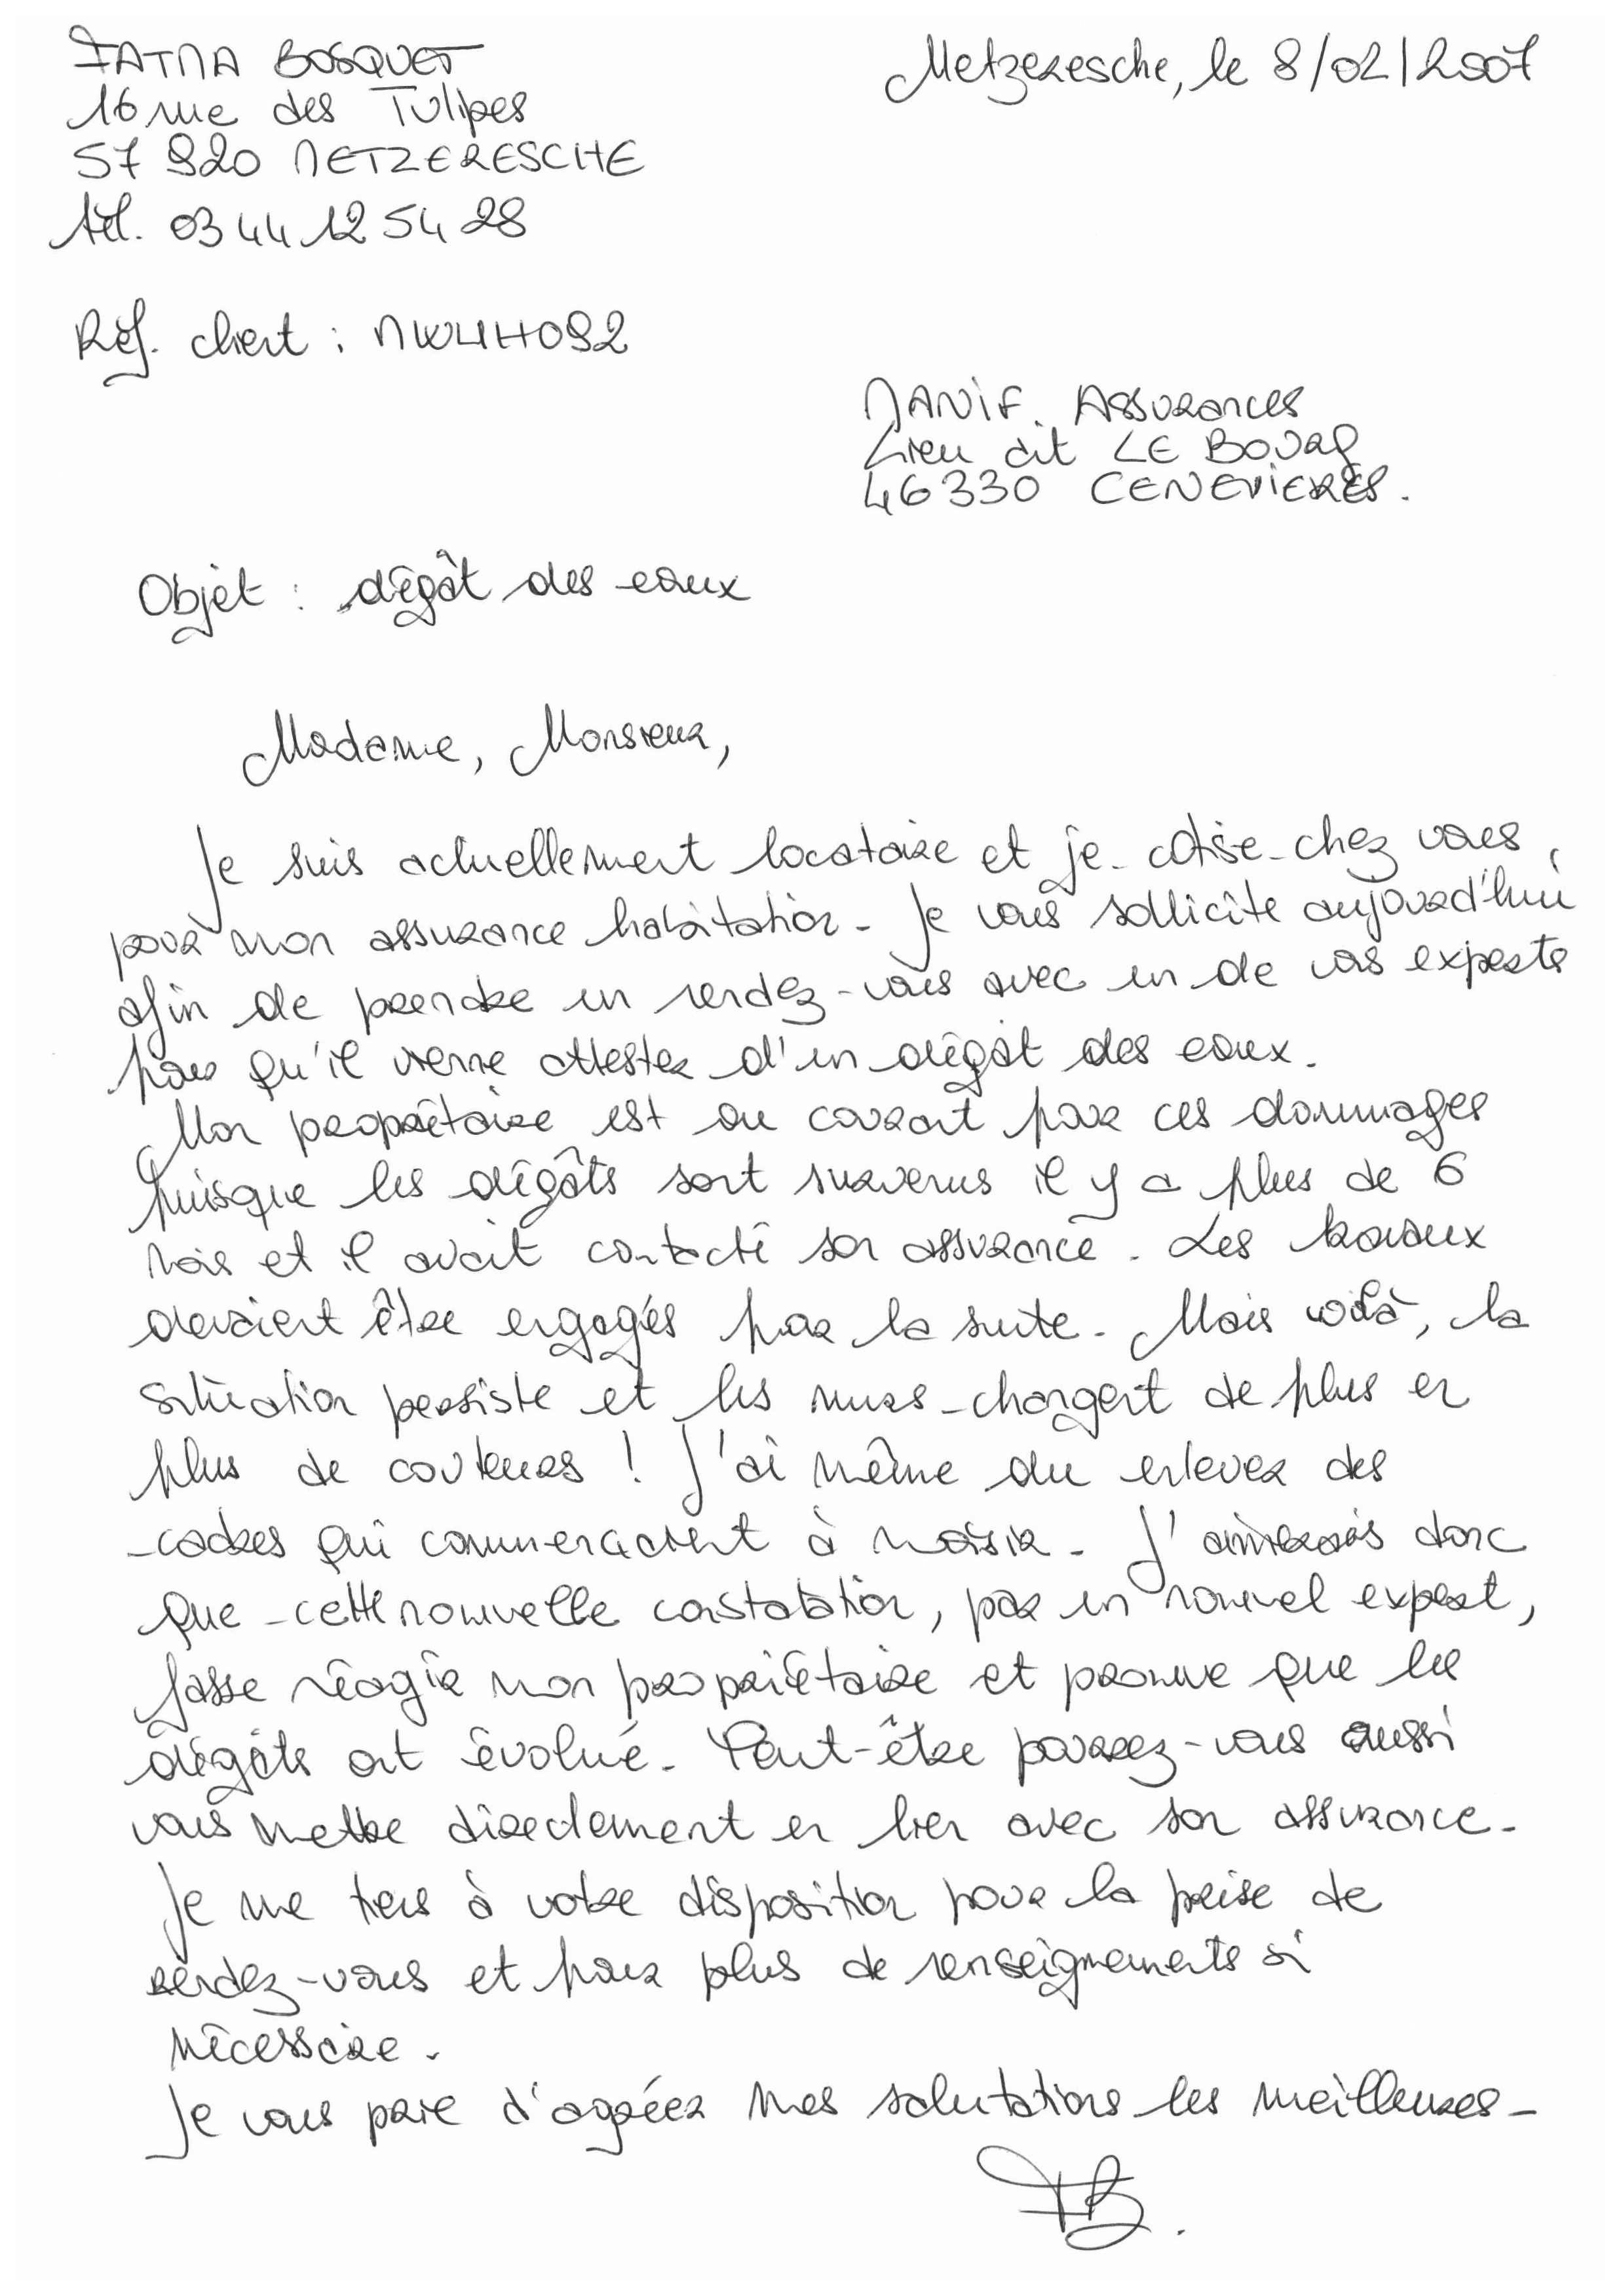 FATMA BOSQUET
Metzeresche, le 8/02/2007
16 rue des Tulipes
57 920 METZERESCHE
tél. 03 44 12 54 28
Réf. client : MWLHH092
MANIF. Assurances
Lieu dit LE BOURG
46330 CENEVIERES.
Objet : dégât des eaux
Madame, Monsieur,
Je suis actuellement locataire et je cotise chez vous,
pour mon assurance habitation. Je vous sollicite aujourd'hui
afin de prendre un rendez-vous avec un de vos experts
pour qu'il vienne attester d'un dégât des eaux.
Mon propriétaire est au courant pour ces dommages
puisque les dégâts sont survenus il y a plus de 6
mois et il avait contacté son assurance. Les travaux
devaient être engagés par la suite. Mais voilà, la
situation persiste et les murs changent de plus en
plus de couleurs ! J'ai même du enlever des
cadres qui commençaient à moisir. J'aimerais donc
que cette nouvelle constatation, par un nouvel expert,
fasse réagir mon propriétaire et prouve que les
dégâts ont évolué. Peut-être pourrez-vous aussi
vous mettre directement en lien avec son assurance.
Je me tiens à votre disposition pour la prise de
rendez-vous et pour plus de renseignements si
nécessaire.
Je vous prie d'agréer mes salutations les meilleures.
FB.